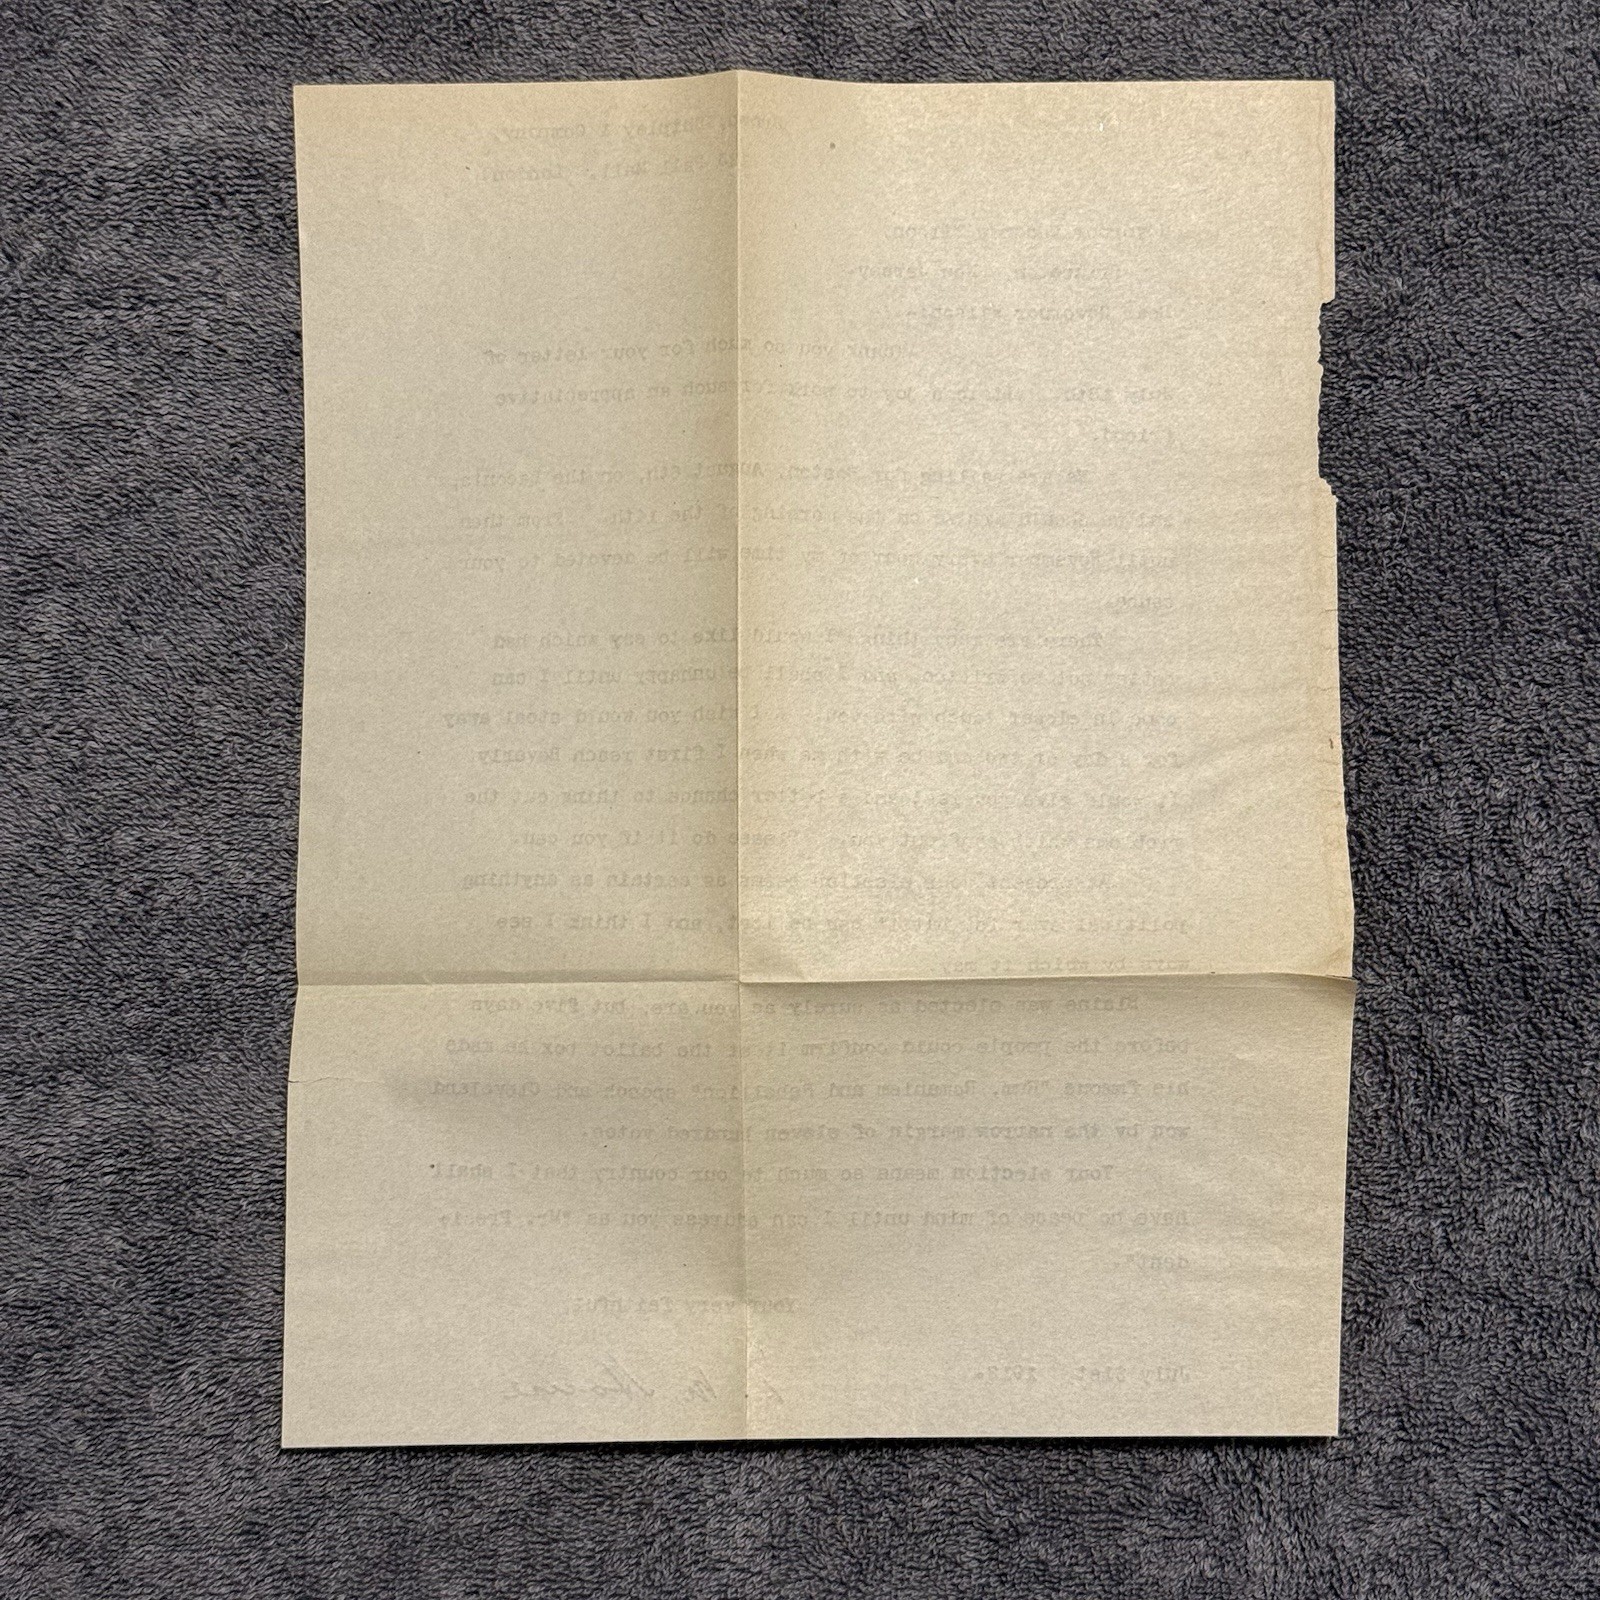 Shipley & Company,
Pall Mall, London.
New Jersey.
Thank you so much for your letter of
July It is a joy to work for such an appreciative
friend.
We are sailing for Boston, August 6th, on the Laconia,
and on the morning of the 14th. From then
until November every hour of my time will be devoted to your
cause.
There are many things I would like to say which had
better not be written, and I shall be unhappy until I can
come in closer touch with you. I wish you would steal away
for a day or two and be with me when I first reach Beverly
It would give a better chance to think out the
problems which confront you. Please do it if you can.
At present your election seems as certain as anything
political ever is, but it can be lost, and I think I see
ways by which it may
Blaine was elected as surely as you are, but five days
before the people could confirm it at the ballot box he made
his famous "Rum, Romanism and Rebellion" speech and Cleveland
won by the narrow margin of eleven hundred votes.
Your election means so much to our country that I shall
have no peace of mind until I can address you as "Mr. Presi-
dent".
Your very faithful,
July 21st, 1912.